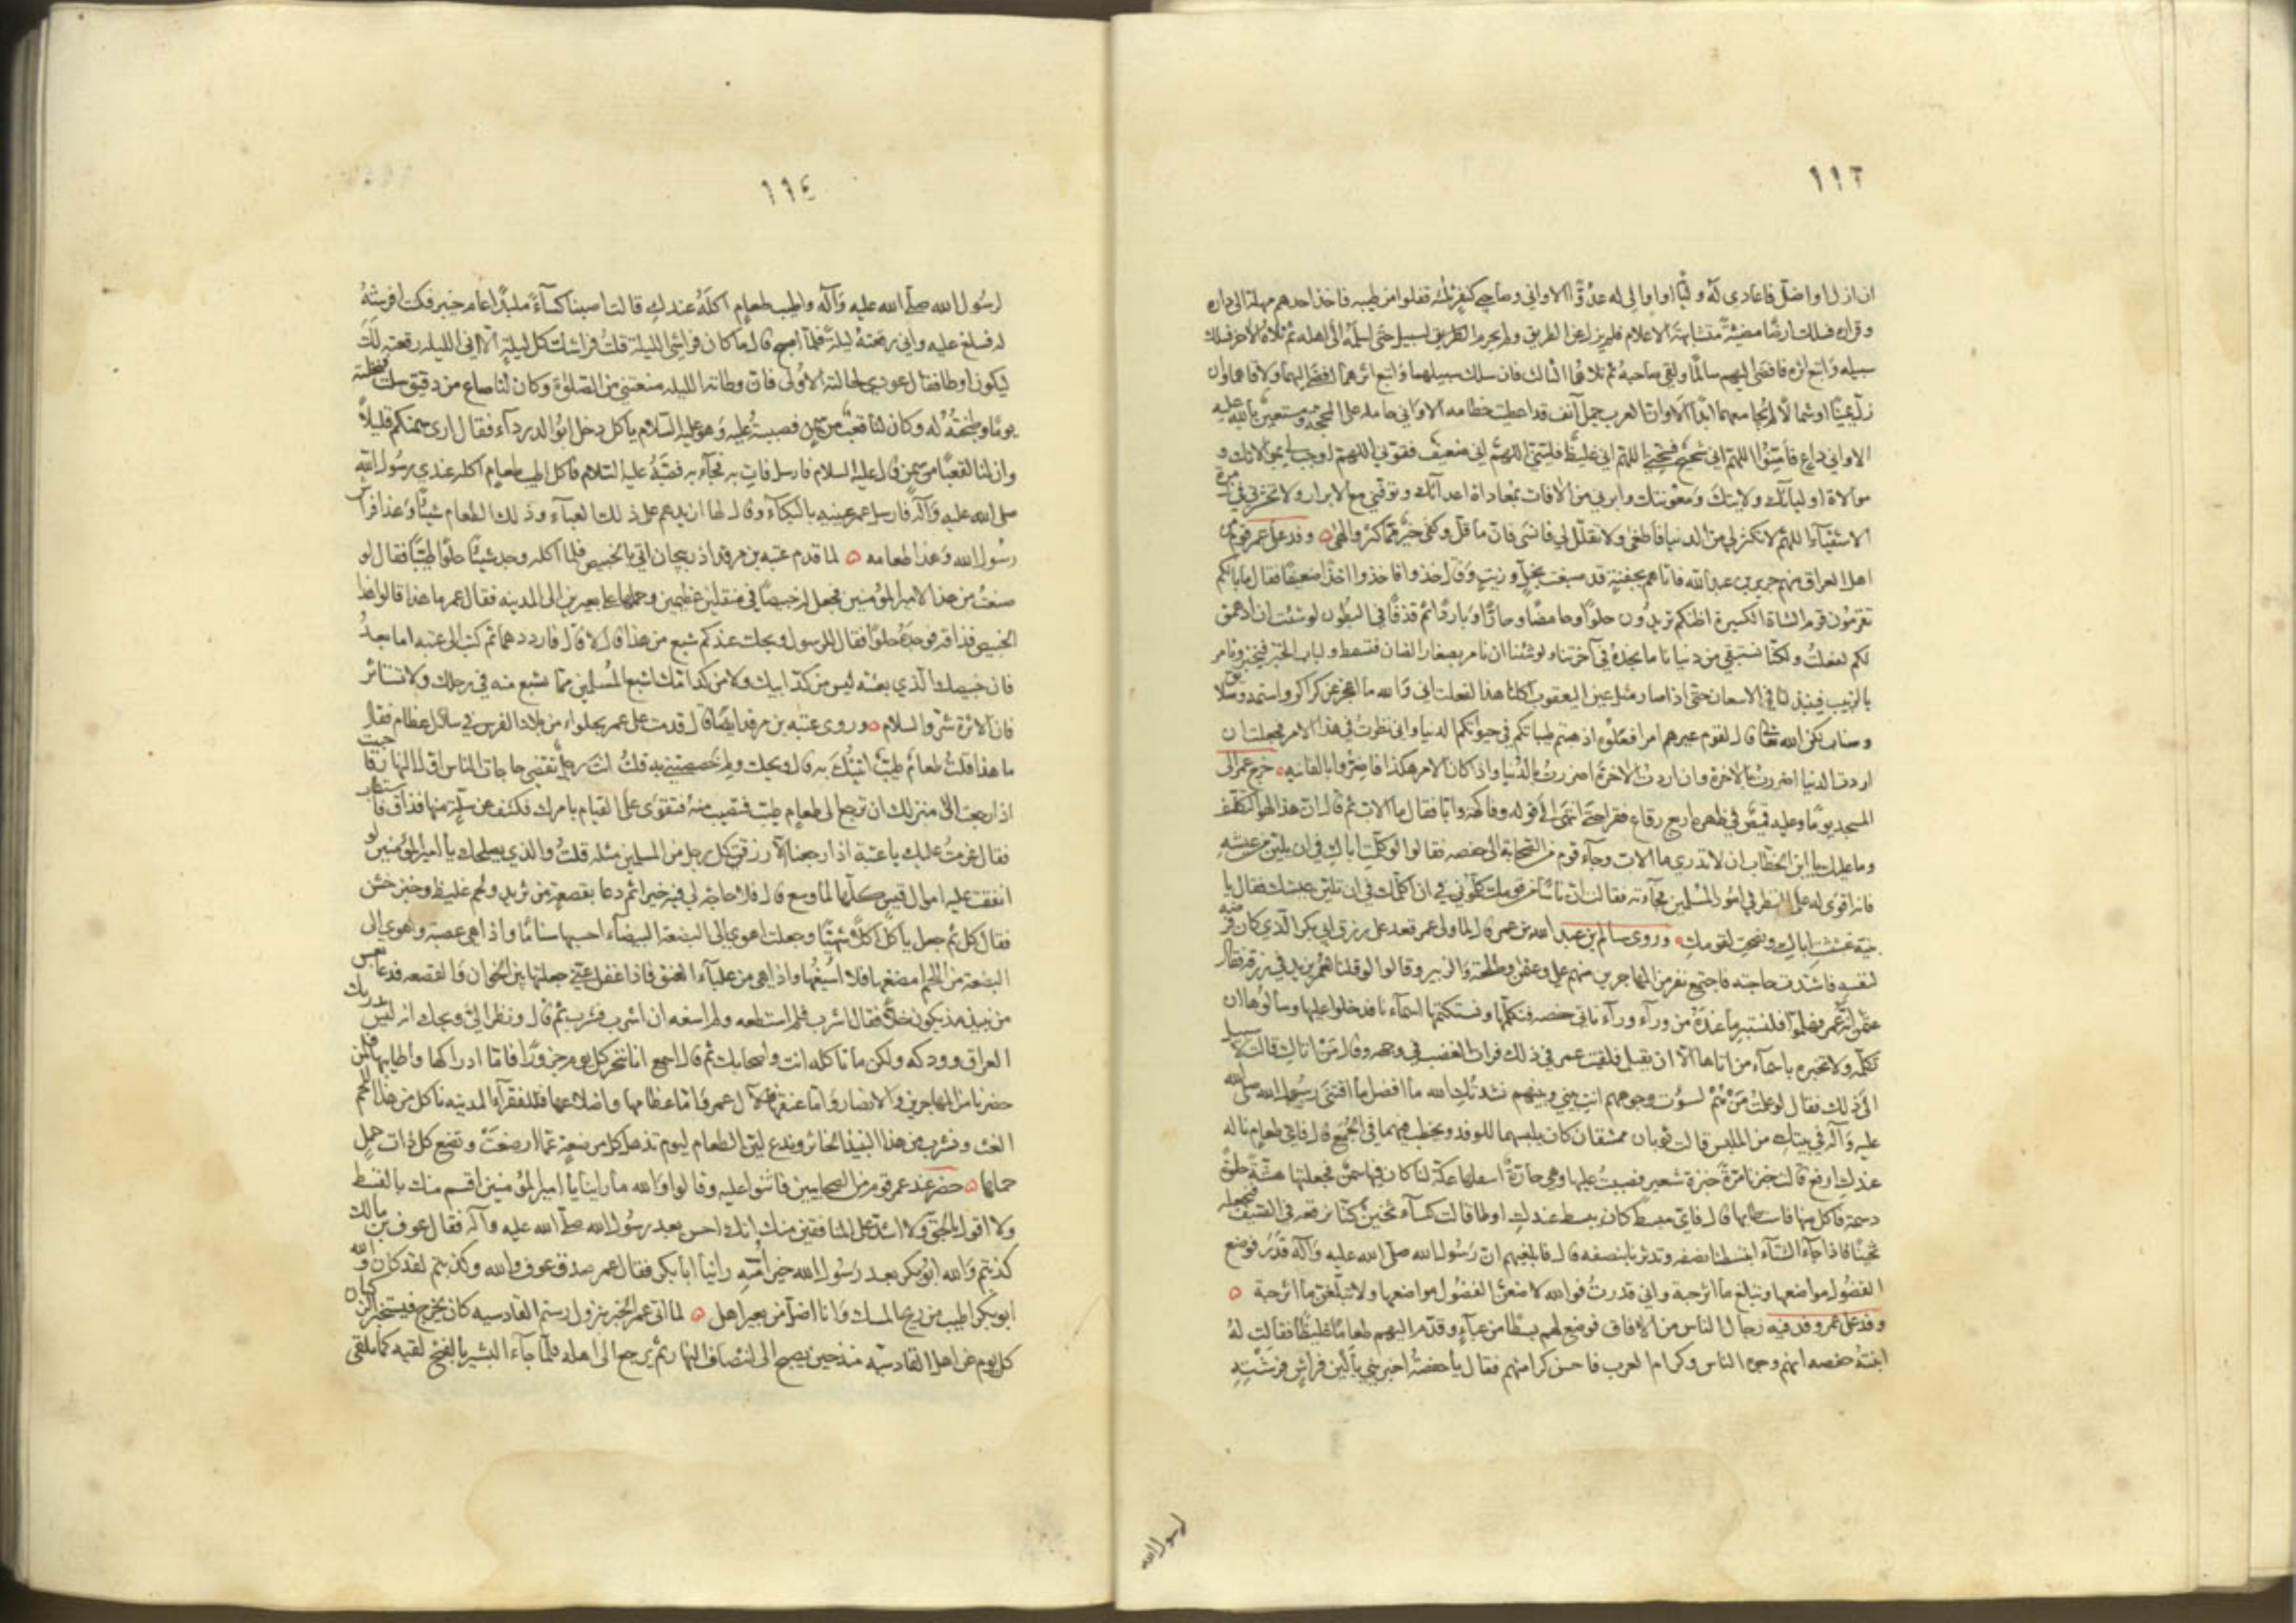 ١١٣
ان ازل او اضل فاعادي له وليا او اوالي له عدوا الا واني وصاحبي كنفر ثلثة قفلوا من طيبه فاخذ احدهم مهلة الى داره
وقراره فسلك ارضا مضيئة متشابهة الاعلام فلم يزل عن الطريق ولم يحرم السبيل حتى اسلمه الى اهله ثم تلاه الاخر فسلك
سبيله واتبع اثره فافضى اليهم سالما ولقي صاحبه ثم تلاهما الثالث فان سلك سبيلهما واتبع اثرهما افضى اليهما ولاقاهما وان
زل يمينا او شمالا لم يجامعهما ابدا الا وان العرب جمل آنف قد اعطيت خطامه الا واني حامله على المحجة ومستعين بالله عليه
الا واني داع فأمنوا اللهم اني شحيح فسخني اللهم اني غليظ فليني اللهم اني ضعيف فقوني اللهم اوجب لي بموالاتك و
موالاة اوليائك ولايتك ومعونتك وابرني من الافات بمعاداة اعدائك وتوفني مع الابرار ولا تحشرني في زمرة
الاشقياء اللهم لا تكثر لي من الدنيا فاطغى ولا تقلل لي فانسى فان ما قل وكفى خير مما كثر والهى وفد على عمر قوم من
اهل العراق منهم جرير بن عبد الله فاتاهم بجفنة قد صبغت بخل وزيت وقال خذوا فاخذوا اخذا ضعيفا فقال ما بالكم
تقرمون قرم الشاة الكسيرة اظنكم تريدون حلوا وحامضا وحارا وباردا ثم قذفا في البطون لو شئت ان ادهمق
لكم لفعلت ولكنا نستبقي من دنيانا ما نجده في آخرتنا ولو شئنا ان نامر بصغار الضان فتسمط ولباب الخبز فيخبز ونامر
بالزبيب فينبذ لنا في الاسعان حتى اذا صار مثل عين اليعقوب اكلنا هذا لفعلت اني والله ما اعجز عن كراكر واسنمة وصلائق
وصناب لكن الله تعالى قال لقوم عيرهم امرا فعلوه اذهبتم طيباتكم في حيوتكم الدنيا واني نظرت في هذا الامر فجعلت ان
اردت الدنيا اضررت بالاخرة وان اردت الاخرة اضررت بالدنيا واذا كان الامر هكذا فاضروا بالفانيه خرج عمر الى
المسجد يوما وعليه قميص في ظهره اربع رقاع فقرا حتى انتهى الى قوله وفاكهة وابا فقال ما الاب ثم قال ان هذا لهو التكلف
وما عليك يا ابن الخطاب ان لا تدري ما الاب وجاء قوم من الصحابة الى حفصه فقالوا لو كلمت اباك في ان يلين من عيشه
فانه اقوى له على النظر في امور المسلمين فجاءته فقالت ان ناسا من قومك كلموني في ان اكلمك في ان تلين من عيشك فقال يا
بنية غششت اباك ونصحت لقومك وروى سالم بن عبد الله بن عمر قال لما ولي عمر قعد على رزق ابي بكر الذي كان فرضه
لنفسه فاشتدت حاجته فاجتمع نفر من المهاجرين منهم علي وعثمن وطلحة والزبير وقالوا لو قلنا لعمر يزيد في رزقه فقال
عثمن انه عمر فهلموا فلنستبر ما عنده من وراء وراء ناتي حفصه فنكلمها ونستكتمها اسماءنا فدخلوا عليها وسالوها ان
تكلمه ولا تخبره باسماء من اتاها الا ان يقبل فلقيت عمر في ذلك فرات الغضب في وجهه وقال من اتاك قالت لا سبيل
الى ذلك فقال لو علمت من هم لسؤت وجوههم انت بيني وبينهم نشدتك الله ما افضل ما اقتنى رسول الله صلى الله
عليه وآله في بيتك من الملبس قالت ثوبان ممشقان كان يلبسهما للوفد ويخطب فيهما في الجمع قال فاي طعام ناله
عندك ارفع قالت خبزنا مرة خبزة شعير فصببت عليها وهي حارة اسفل عكة لنا كان فيها سمن فجعلتها هشة حلوة
دسمة فاكل منها فاستطابها قال فاي مبسط كان يبسط عندك اوطا قالت كساء ثخين كنا نرقعه في الصيف فنجعله
ثخينا فاذا جاء الشتاء ابتسطنا نصفه وتدثرنا بنصفه قال فابلغيهم ان رسول الله صلى الله عليه وآله قدر فوضع
الفضول مواضعها وتبلغ ما ازجية واني قدرت فوالله لاضعن الفضول مواضعها ولاتبلغن ما ازجية
وفد على عمر وفد فيه رجال الناس من الافاق فوضع لهم بسطا من عباء وقدم اليهم طعاما غليظا فقالت له
ابنته حفصه انهم وجوه الناس وكرام العرب فاحسن كرامتهم فقال يا حفصة اخبريني بالين فراش فرشتيه
لرسول الله
١١٤
لرسول الله صلى الله عليه وآله واطيب طعام اكله عندك قالت اصبنا كساء ملبدا عام خيبر فكنت افرشه
له فينام عليه واني رفعته ليلة فلما اصبح قال ما كان فراشي الليلة قلت فراشك كل ليلة الا اني الليلة رفعته لك
ليكون اوطا فقال اعوديه لحالته الاولى فان وطاته الليلة منعتني من الصلوة وكان لنا صاع من دقيق سلت فنخلته
يوما وطبخته له وكان لنا قعب من سمن فصببته عليه وهو عليه السلام ياكل دخل ابو الدرداء فقال ارى سمنكم قليلا
وان لنا لقعبا من سمن قال عليه السلام فارسل فات به فجاء به فصبه عليه السلام فاكل اطيب طعام اكله عندي رسول الله
صلى الله عليه وآله فارسل عمر عينيه بالبكاء وقال لها
رسول الله وهذا طعامه لما قدم عتبه بن مرقد اذربيجان اتي بالخبيص فلما اكله وجد شيئا حلوا طيبا فقال لو
صنعت من هذا لامير المؤمنين فجعل له خبيصا في منقلين عظيمين وحملهما على بعيرين الى المدينه فقال عمر ما هذا قالوا هذا
الخبيص فذاقه فوجده حلوا فقال للرسول ويحك عندكم شبع من هذا قال لا قال فارددهما ثم كتب الى عتبه اما بعد
فان خبيصك الذي بعثته ليس من كد ابيك ولا من كد امك اشبع المسلمين مما تشبع منه في رحلك ولا تستاثر
فان الاثرة شر والسلام وروى عتبه بن مرقد ايضا قال قدمت على عمر بحلواء من بلاد الفرس في سلال عظام فقال
ما هذا قلت طعام طيب اتيتك به قال ويحك ولم خصصتني به قلت انت رجل تقضي حاجات الناس اول النهار فاحببت
اذا رجعت الى منزلك ان ترجع الى طعام طيب فتصيب منه فتقوى على القيام بامرك فكشف عن سلة منها فذاق فاستطاب
فقال عزمت عليك يا عتبة اذا رجعت الا رزقت كل رجل من المسلمين مثله قلت والذي يصلحك يا امير المؤمنين لو
انفقت عليه اموال قيس كلها لما وسع قال فلا حاجة لي فيه اذا ثم دعا بقصعة من ثريد ولحم غليظ وخبز خشن
فقال كل ثم جعل ياكل اكلا شهيا وجعلت اهوي الى البضعة البيضاء احسبها سناما واذا هي عصبة واهوي الى
البضعة من اللحم امضغها فلا اسيغها واذا هي من علباء العنق فاذا غفل عني جعلتها بين الخوان والقصعه فدعا بعس
من نبيذ كاد يكون خلا فقال اشرب فلم استطعه ولم اسغه ان اشرب فشرب ثم قال ونظر الي ويحك انه ليس بدرمك
العراق وودكه ولكن ما تاكله انت واصحابك ثم قال اسمع انا ننحر كل يوم جزورا فاما اوراكها واطايبها فلمن
حضرنا من المهاجرين والانصار واما عنقها فلآل عمر واما عظامها واضلاعها فللفقراء المدينه ناكل من هذا اللحم
الغث ونشرب من هذا النبيذ الخاثر وندع لين الطعام ليوم تذهل كل مرضعة عما ارضعت وتضع كل ذات حمل
حملها حضر عند عمر قوم من الصحابيين فاثنوا عليه وقالوا والله ما راينا يا امير المؤمنين اقسم منك بالقسط
ولا اقول بالحق ولا اشد على المنافقين منك انك احسن بعد رسول الله صلى الله عليه وآله فقال عوف بن مالك
كذبتم والله ابو بكر بعد رسول الله خير امته راينا ابا بكر فقال عمر صدق عوف والله وكذبتم لقد كان والله
ابو بكر اطيب من ريح المسك وانا اضل من بعير اهلي لما اتى عمر الخبر بنزول رستم القادسيه كان يخرج فيستخبر الركبان
كل يوم عن اهل القادسيه من حين يصبح الى انتصاف النهار ثم يرجع الى اهله فلما جاء البشير بالفتح لقيه كما يلقى